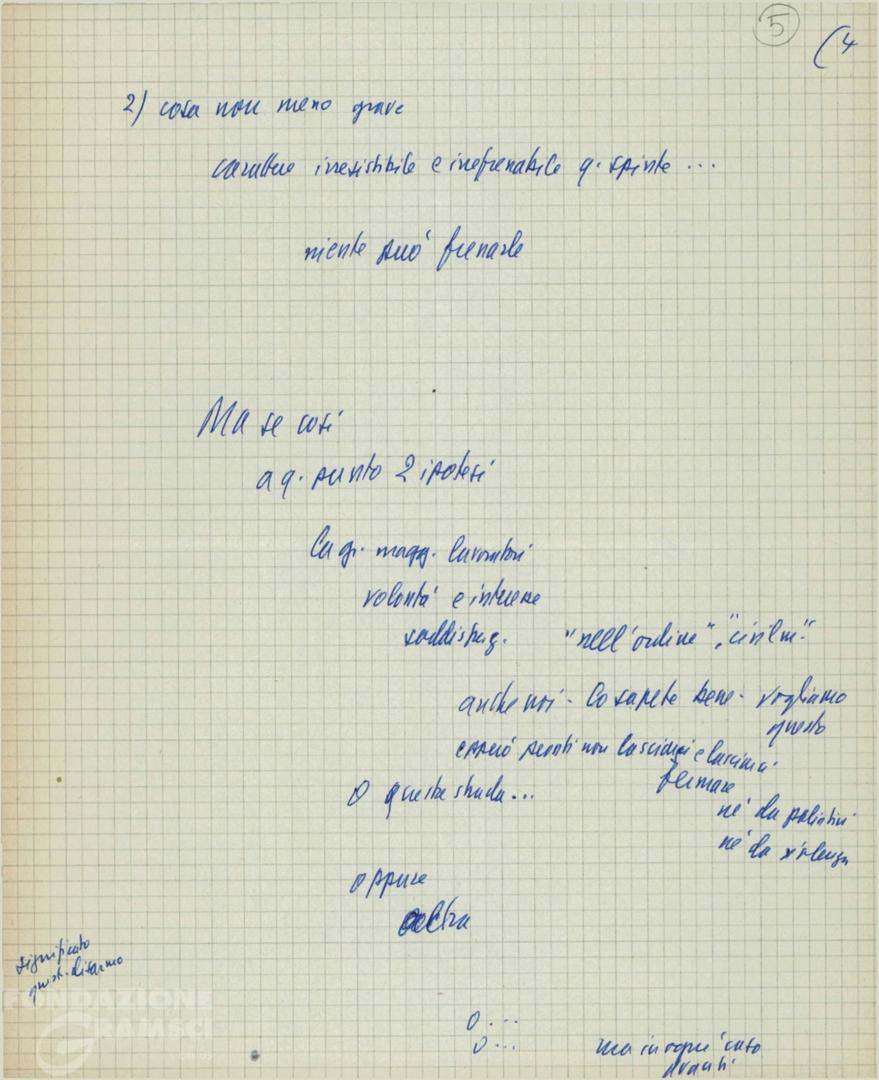 5
(4
2) cosa non meno grave
carattere irresistibile e irrefrenabile q. spinte ...
niente può frenarle
Ma se così
a q. punto 2 ipotesi
la gr. magg. lavoratori
volontà e interesse
soddisfaz. "nell'ordine", "civilm."
anche noi - lo sapete bene - vogliamo
questo
e perciò pronti non lasciarci e lasciarci
fermare
o questa strada...
né da palliativi
né da violenza
oppure
altra
significato
quest. disarmo
FONDAZIONE
GRAMSCI
o ...
o ...
ma in ogni caso
avanti